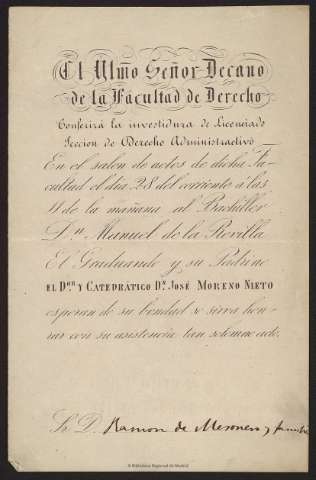 El Ylmo Señor Decano
de la Facultad de Derecho
Conferirá la investidura de Licenciado
Seccion de Derecho Administrativo
En el salon de actos de dicha Fa-
cultad el dia 28 del corriente á las
11 de la mañana al Bachiller
Dn. Manuel de la Revilla
El Graduando y su Padrino
EL DOR. Y CATEDRÁTICO DN. JOSÉ MORENO NIETO
esperan de su bondad se sirva hon-
rar con su asistencia tan solemne acto.
Sr. D. Ramon de Mesonero y familia
© Biblioteca Regional de Madrid